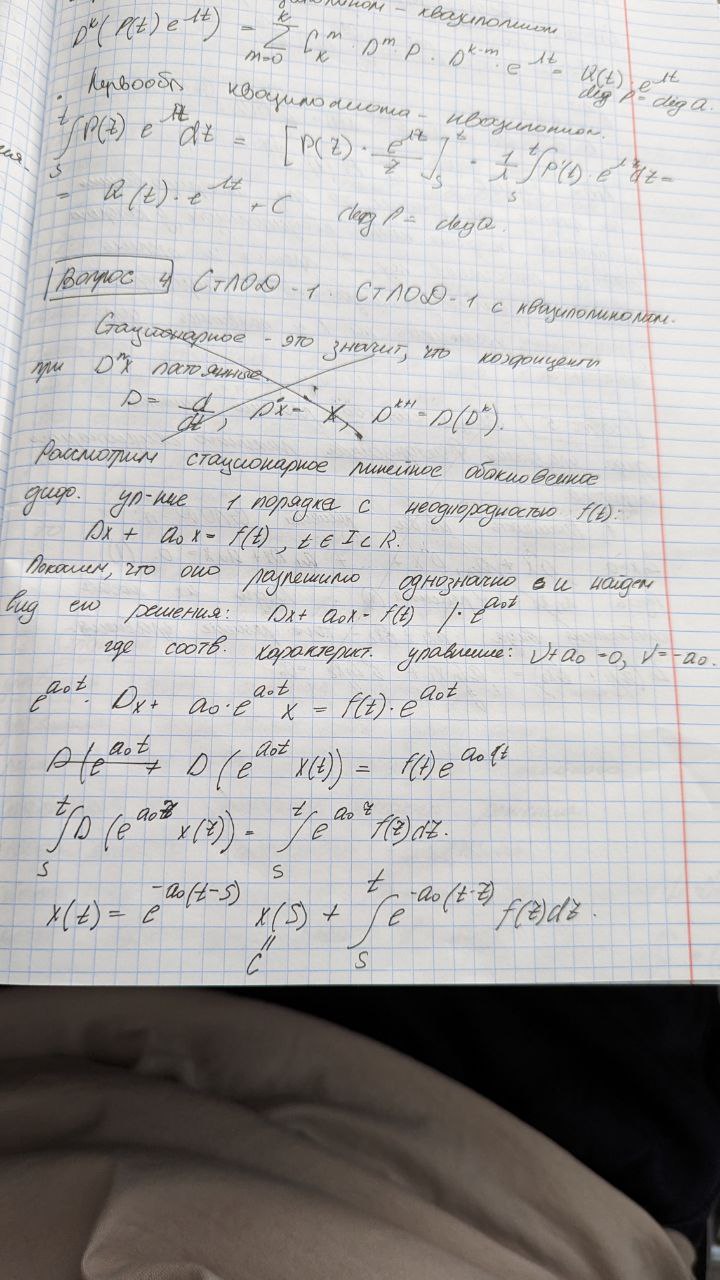 квазиполином
D^k(P(t)e^{λt}) = Σ_{m=0}^{k} C_k^m · D^m · P · D^{k-m} · e^{λt} = Q(t) · e^{λt}
deg P = deg Q.
· Первообр. квазиполинома - квазиполином.
∫_s^t P(τ) e^{λτ} dτ = [P(τ) · e^{λτ}/τ]_s^t · 1/λ ∫_s^t P'(t) · e^{λτ} dτ =
= Q(t) · e^{λt} + C deg P = deg Q.
Вопрос 4 СтЛОДУ-1. СтЛОДУ-1 с квазиполином.
Стационарное - это значит, что коэфиценты
при D^n x постоянные.
D = d/dt, Dx = ẋ, D^{k+1} = D(D^k).
Рассмотрим стационарное линейное обыкновенное
диф. ур-ние 1 порядка с неоднородностью f(t):
Dx + a₀x = f(t), t ∈ I ⊂ R.
Покажем, что оно разрешимо однозначно и найдем
вид его решения: Dx + a₀x = f(t) | · e^{a₀t}
где соотв. характерист. уравнение: ν + a₀ = 0, ν = -a₀.
e^{a₀t} · Dx + a₀ · e^{a₀t} x = f(t) · e^{a₀t}
D(e^{a₀t} + D(e^{a₀t} x(t)) = f(t) e^{a₀t}
∫_s^t D(e^{a₀τ} x(τ)) = ∫_s^t e^{a₀τ} f(τ) dτ.
x(t) = e^{-a₀(t-s)} x(s) + ∫_s^t e^{-a₀(t-τ)} f(τ) dτ.
=
C